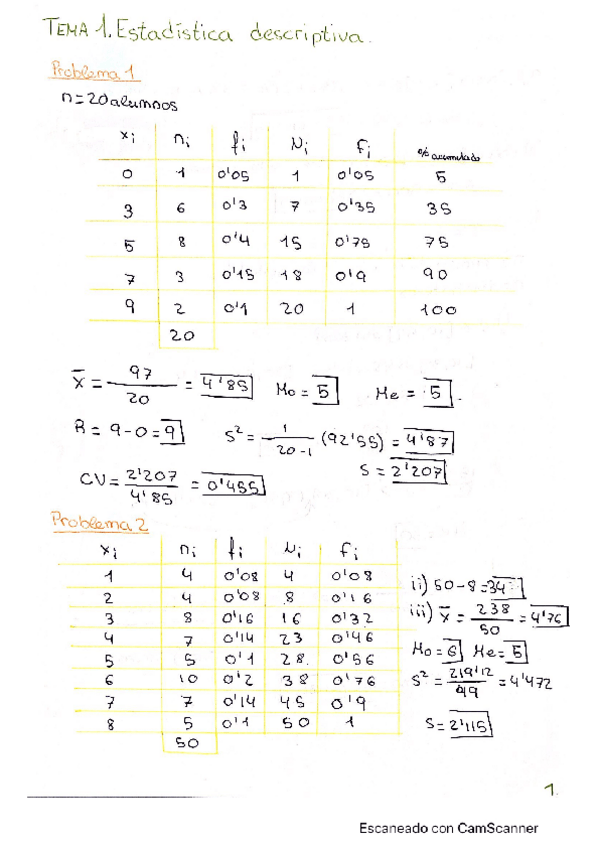 TEMA 1. Estadística descriptiva.
Problema 1
n=20 alumnos
xi ni fi Ni Fi % acumulado
0 1 0'05 1 0'05 5
3 6 0'3 7 0'35 35
5 8 0'4 15 0'75 75
7 3 0'15 18 0'9 90
9 2 0'1 20 1 100
20
x̄ = 97/20 = 4'85 Mo = 5 Me = 5.
R = 9-0 = 9 S² = 1/20-1 (92'55) = 4'87
S = 2'207
CV = 2'207/4'85 = 0'455
Problema 2
xi ni fi Ni Fi
1 4 0'08 4 0'08
2 4 0'08 8 0'16
3 8 0'16 16 0'32
4 7 0'14 23 0'46
5 5 0'1 28. 0'56
6 10 0'2 38 0'76
7 7 0'14 45 0'9
8 5 0'1 50 1
50
ii) 50-8=34
iii) x̄ = 238/50 = 4'76
Mo = 6 Me = 5
S² = 219'12/49 = 4'472
S = 2'115
1.
Escaneado con CamScanner